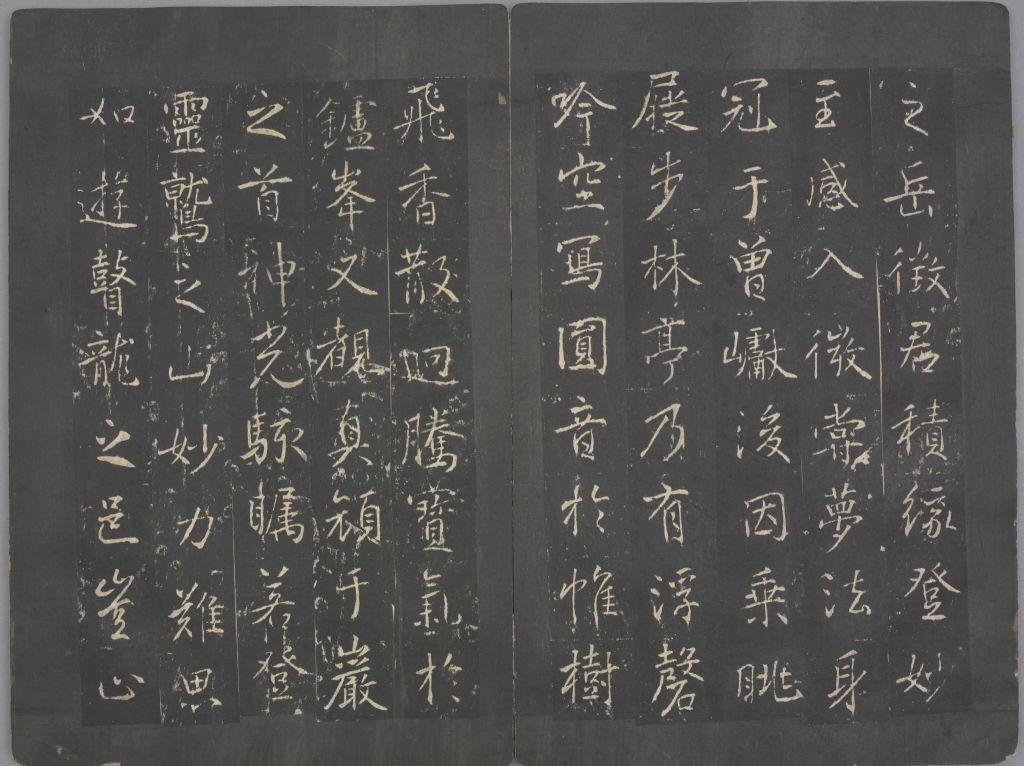 之岳徵君積緣登妙
至感入微嘗夢法身
冠于曾巘後因乘眺
展步林亭乃有浮磬
吟空寫圓音於帷樹
飛香散迥騰寶氣於
鑪峯又覩真顏于巖
之首神光駭矚若登
靈鷲之山妙力難思
如遊龍之邑豈止